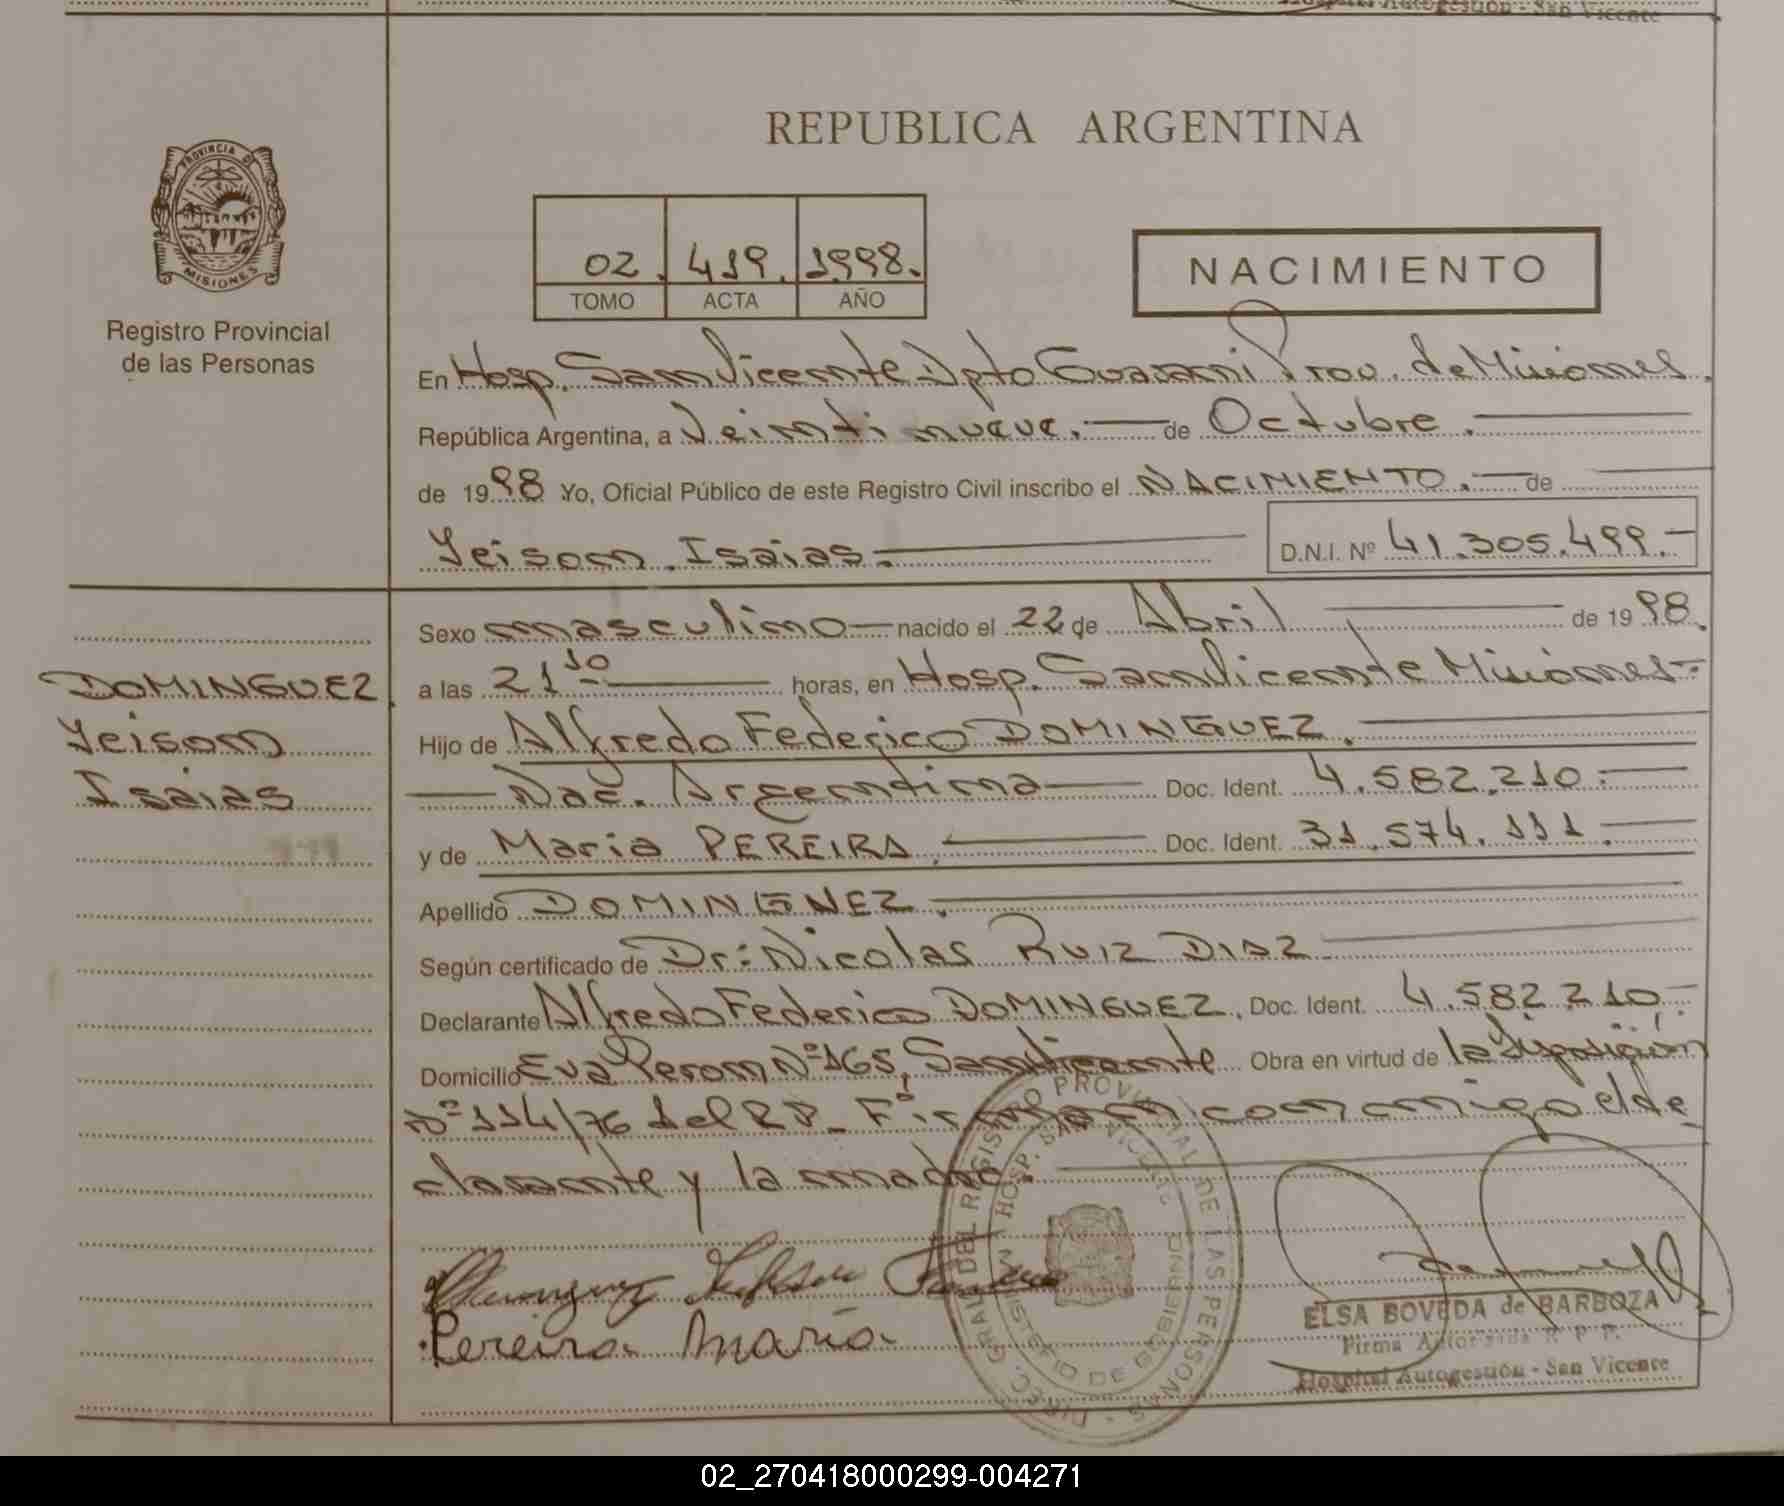 Hospital Autogestión - San Vicente
REPUBLICA ARGENTINA
PROVINCIA DE
MISIONES
Registro Provincial
de las Personas
02. 419. 1998.
TOMO ACTA AÑO
NACIMIENTO
En Hosp. San Vicente Dpto Guarani Prov. de Misiones.
República Argentina, a Veinti nueve. de Octubre.
de 1998 Yo, Oficial Público de este Registro Civil inscribo el NACIMIENTO. de
Yeison. Isaias. D.N.I. Nº 41.305.499.-
Sexo masculino nacido el 22 de Abril de 1998.
DOMINGUEZ
Yeison
Isaias
a las 21 10 horas, en Hosp. San Vicente Misiones-
Hijo de Alfredo Federico DOMINGUEZ.
Nac. Argentina Doc. Ident. 4.582.210.
y de Maria PEREIRA. Doc. Ident. 31.574.111.
Apellido DOMINGUEZ.
Según certificado de Dr: Nicolas RUIZ DIAZ
Declarante Alfredo Federico DOMINGUEZ. Doc. Ident. 4.582.210.-
Domicilio Eva Peron Nº 165, San Vicente Obra en virtud de la Disposición
Nº 114/76 del RP_ Firman conmigo el de_
clarante y la madre.
Pereira Maria
DIREC. GRAL DEL REGISTRO PROVINCIAL DE LAS PERSONAS -
HOSP. SAN VICENTE
DE GOBIERNO
ELSA BOVEDA de BARBOZA
Firma Autorizada R P P.
Hospital Autogestión - San Vicente
02_270418000299-004271